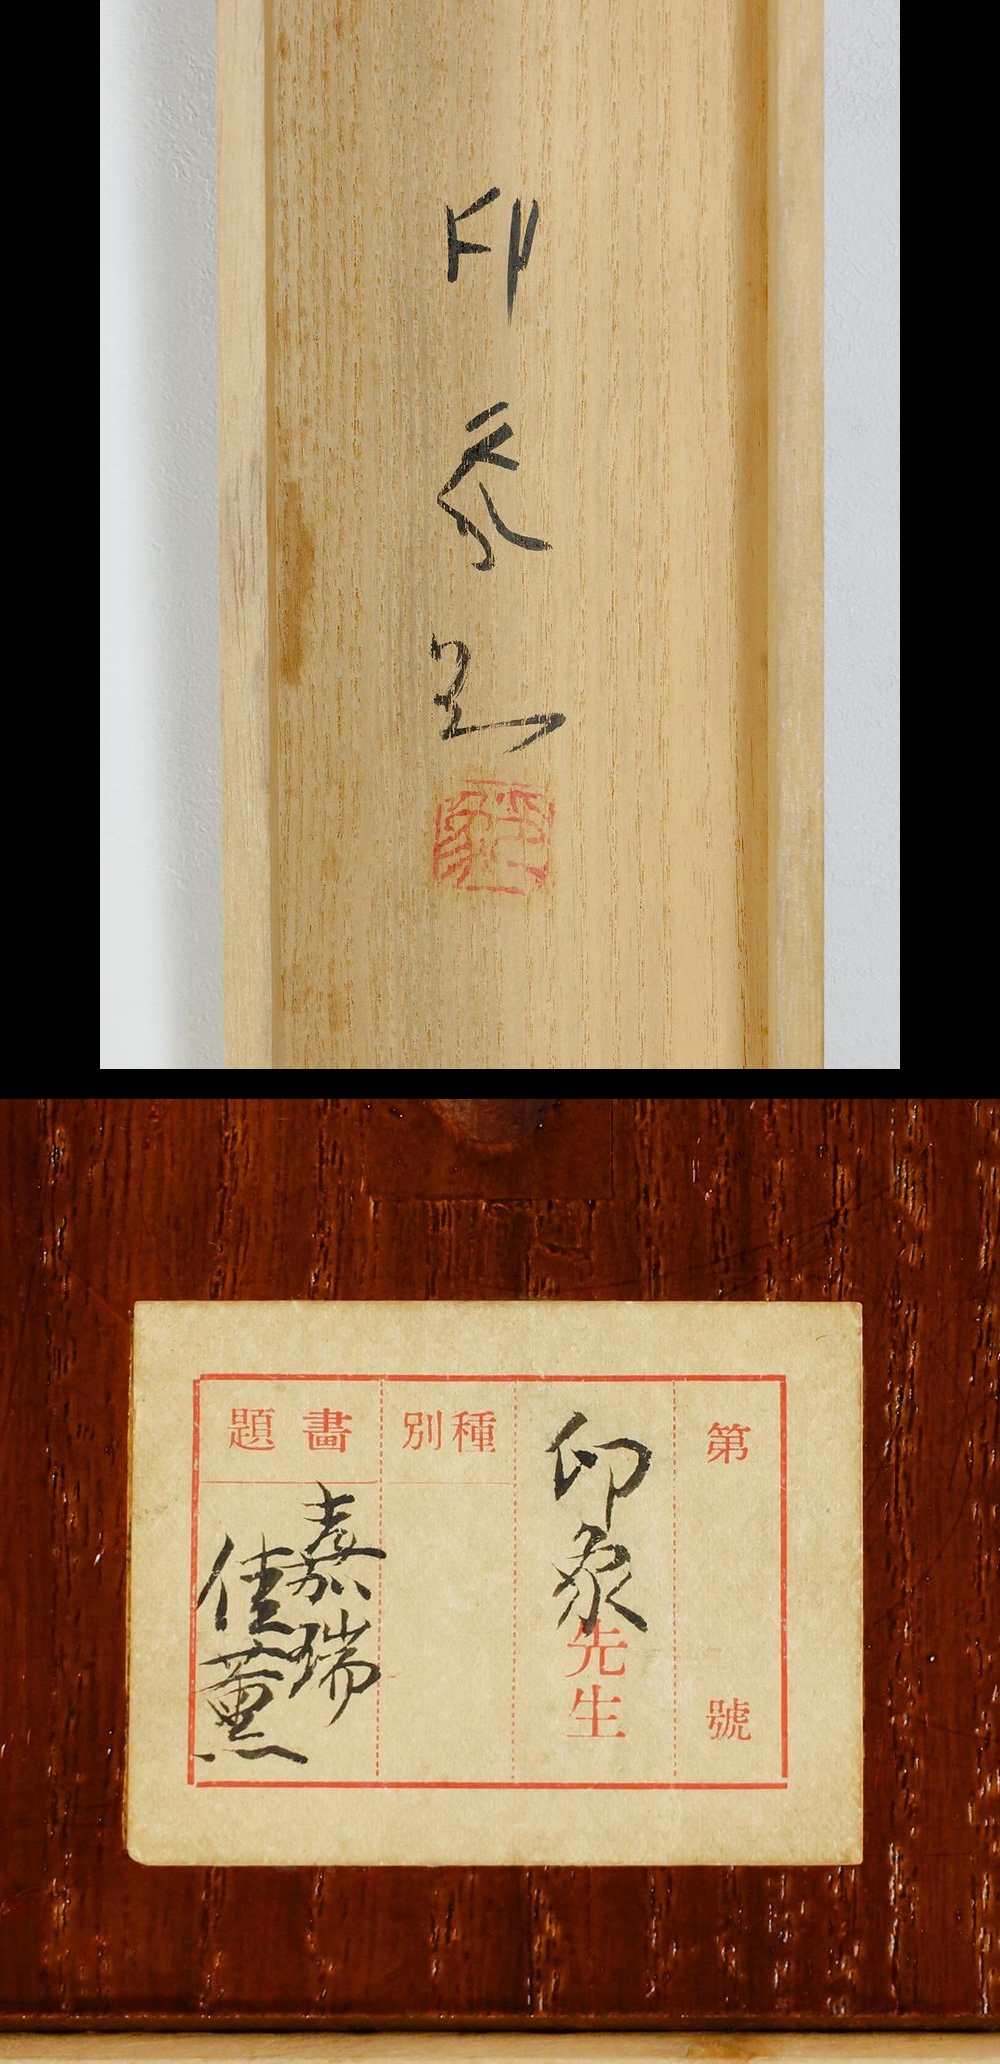 印象
第 號
印象先生
種別
畫題
嘉瑞
佳薫